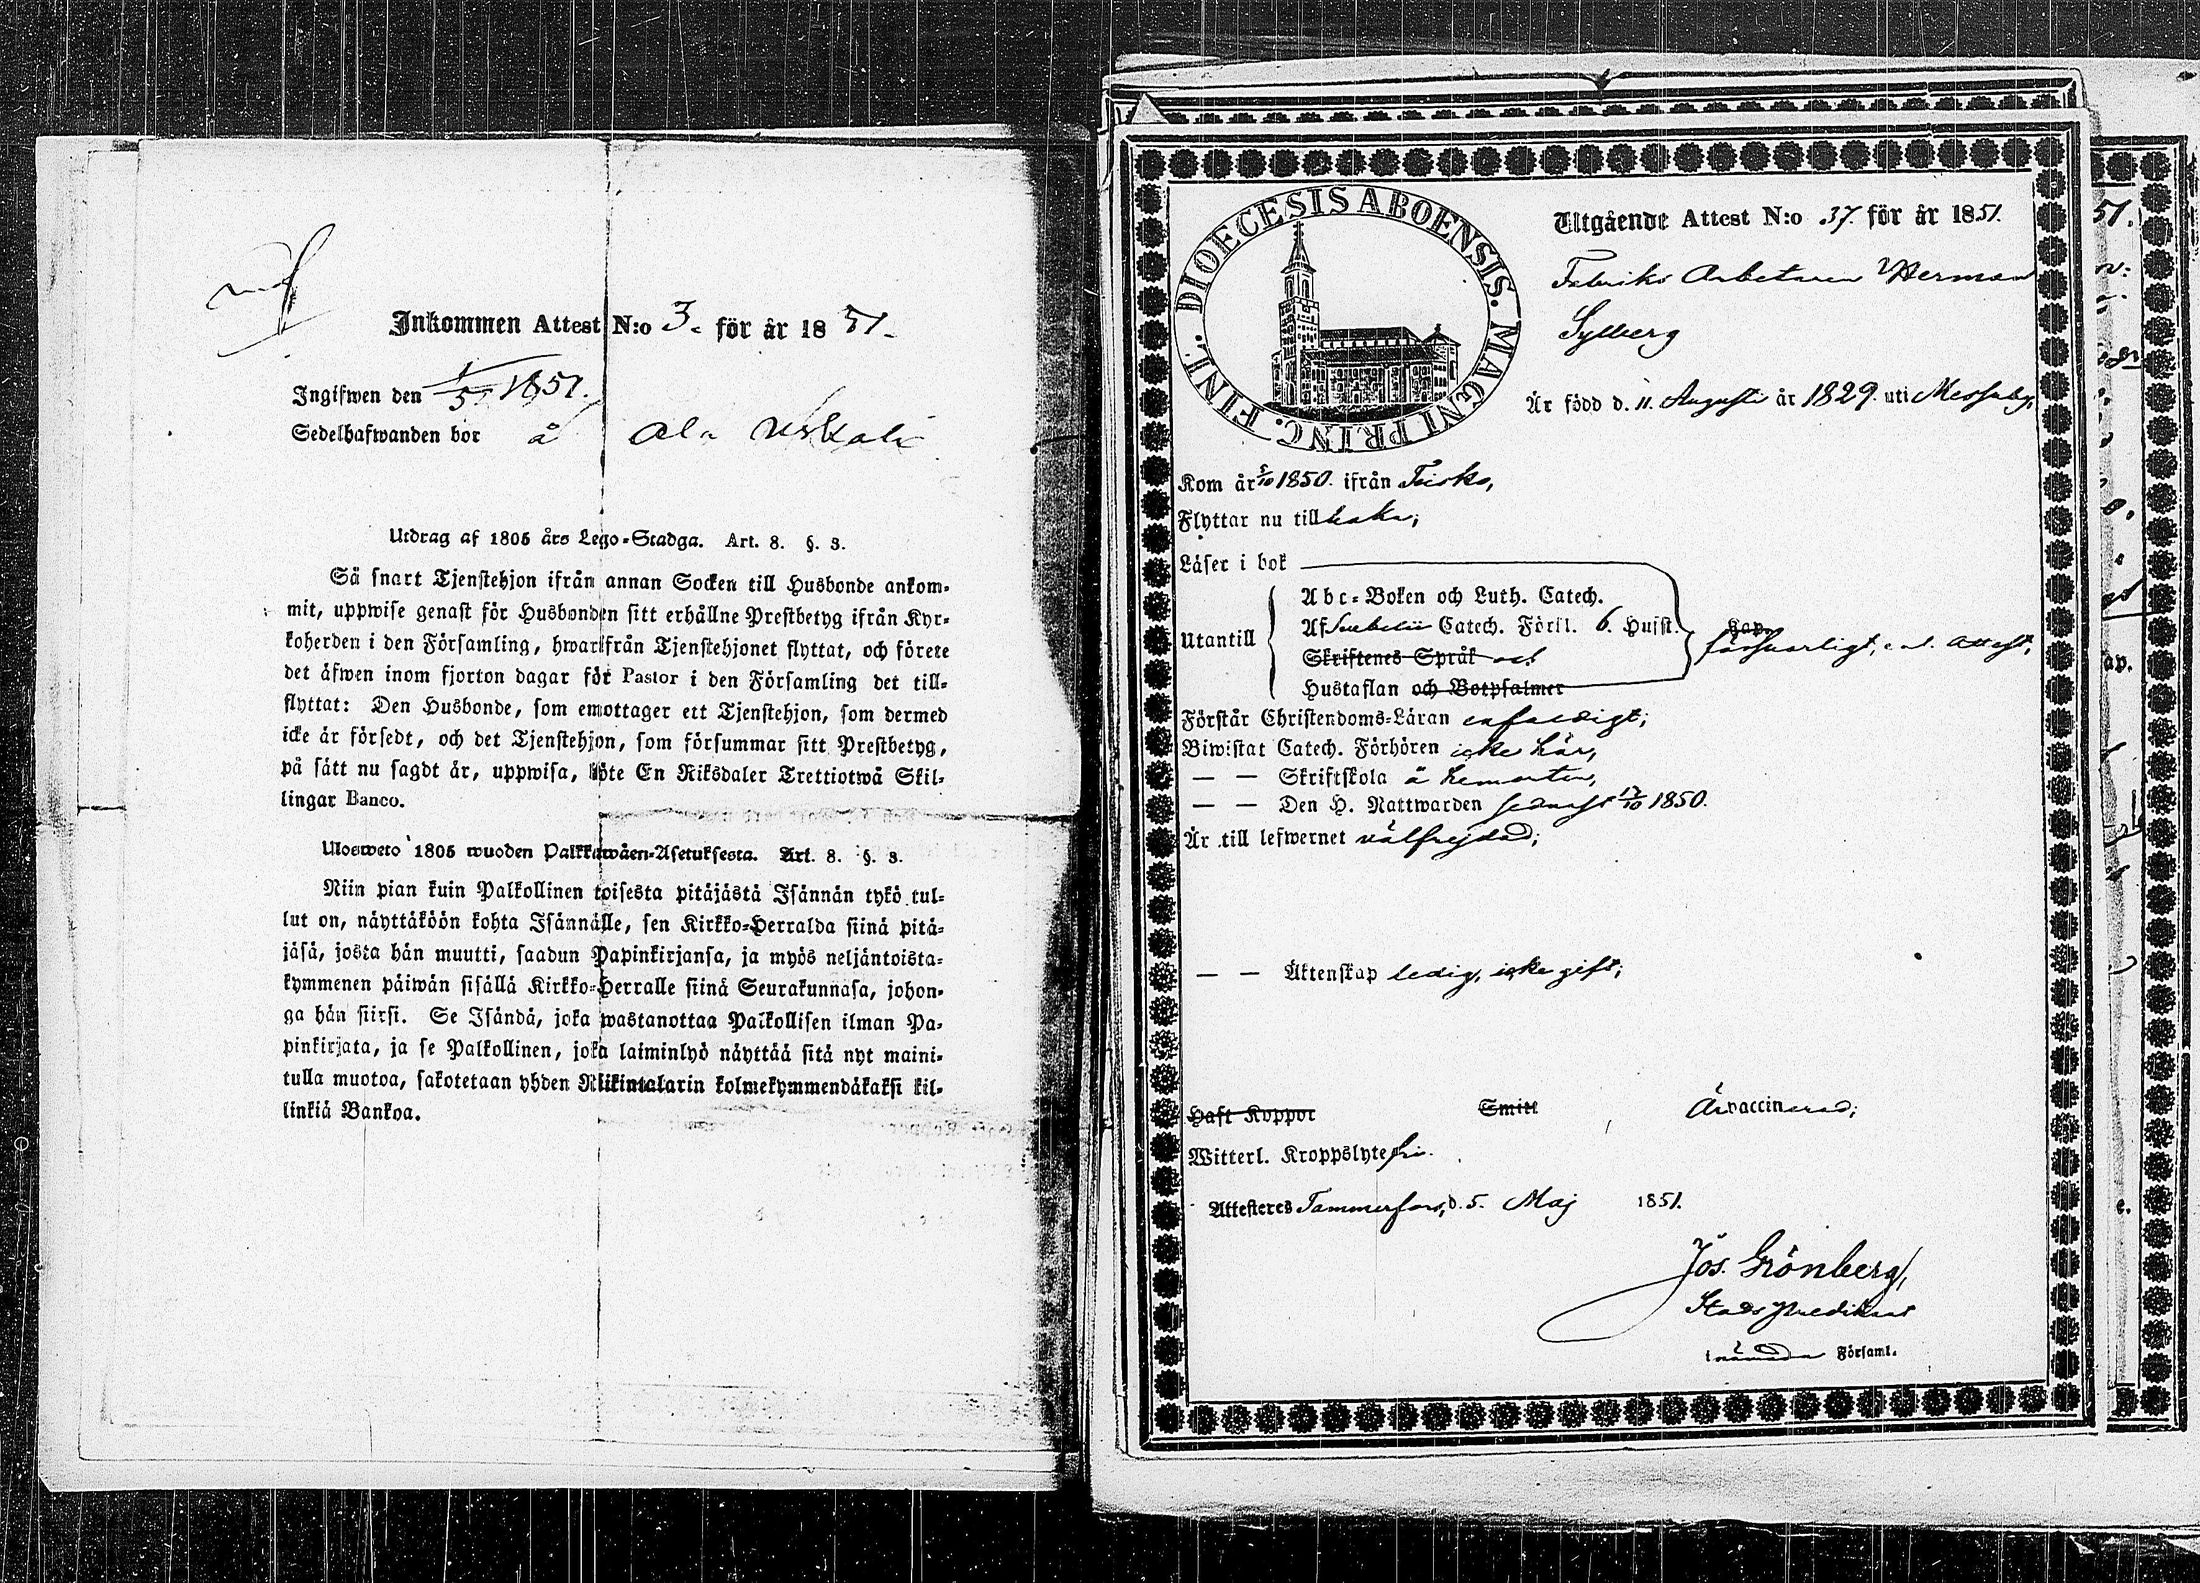 Inkommen Attest N:o 3. för år 1851.
Ingifwen den 1/5 1851.
Sedelhafwanden bor å Ala
Utdrag af 1805 års Lego-Stadga. Art. 8. §. 3.
Så snart Tjenstehjon ifrån annan Socken till Husbonde ankom-
mit, uppwise genast för Husbonden sitt erhållne Prestbetyg ifrån Kyr-
koherden i den Församling, hwarifrån Tjenstehjonet flyttat, och förete
det äfwen inom fjorton dagar för Pastor i den Församling det till-
flyttat: Den Husbonde, som emottager ett Tjenstehjon, som dermed
icke är försedt, och det Tjenstehjon, som försummar sitt Prestbetyg,
på sätt nu sagdt är, uppwisa, böte En Riksdaler Trettiotwå Skil-
lingar Banco.
Ulosweto 1805 wuoden Palkkawäen-Asetuksesta. Art. 8. §. 3.
Niin pian kuin Palkollinen toisesta pitäjästä Isännän tykö tul-
lut on, näyttäköön kohta Isännälle, sen Kirkko-Herralda siinä pitä-
jäsä, josta hän muutti, saadun Papinkirjansa, ja myös neljäntoista-
kymmenen päiwän sisällä Kirkko-Herralle siinä Seurakunnasa, johon-
ga hän siirsi. Se Isändä, joka wastanottaa Palkollisen ilman Pa-
pinkirjata, ja se Palkollinen, joka laiminlyö näyttää sitä nyt maini-
tulla muotoa, sakotetaan yhden Riikintalarin kolmekymmendäkaksi kil-
linkiä Bankoa.
DIOECESIS ABOENSIS. MAGNI PRINC. FINL.
Utgående Attest N:o 37. för år 1851.
Fabriks Arbetaren Herman
Sylberg
Är född d. 11. Augusti år 1829. uti Messuby,
Kom år 5/10 1850. ifrån
Flyttar nu till
Läser i bok
Utantill
Abc-Boken och Luth. Catech.
Af Svebelii Catech. Förkl. 6. Husst.
Skriftenes Språk och
Hustaflan och Botpsalmer
försvarligt, e. l. attest,
Förstår Christendoms-Läran enfaldigt;
Biwistat Catech. Förhören icke här,
— — Skriftskola å hemorten,
— — Den H. Nattwarden sednast 17/10 1850.
Är till lefwernet välfrejdad;
— — Äktenskap ledig, icke gift;
Haft Koppor Smitt Är vaccinerad;
Witterl. Kroppslyte fri.
Attesteres Tammerfors, d. 5. Maj 1851.
Jos. Grönberg,
Stads Predikant
i nämnda Församl.